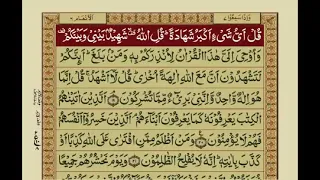 قُلْ اَیُّ شَیْءٍ اَكْبَرُ شَهَادَةً ؕ قُلِ اللّٰهُ ۫ شَهِیْدٌۢ بَیْنِیْ وَ بَیْنَكُمْ ۫
وَ اُوْحِیَ اِلَیَّ هٰذَا الْقُرْاٰنُ لِاُنْذِرَكُمْ بِهٖ وَ مَنْۢ بَلَغَ ؕ اَىِٕنَّكُمْ
لَتَشْهَدُوْنَ اَنَّ مَعَ اللّٰهِ اٰلِهَةً اُخْرٰی ؕ قُلْ لَّاۤ اَشْهَدُ ۚ قُلْ اِنَّمَا
هُوَ اِلٰهٌ وَّاحِدٌ وَّ اِنَّنِیْ بَرِیْٓءٌ مِّمَّا تُشْرِكُوْنَ ۘ اَلَّذِیْنَ اٰتَیْنٰهُمُ
الْكِتٰبَ یَعْرِفُوْنَهٗ كَمَا یَعْرِفُوْنَ اَبْنَآءَهُمْ ۘ اَلَّذِیْنَ خَسِرُوْۤا اَنْفُسَهُمْ
فَهُمْ لَا یُؤْمِنُوْنَ وَ مَنْ اَظْلَمُ مِمَّنِ افْتَرٰی عَلَی اللّٰهِ كَذِبًا اَوْ
كَذَّبَ بِاٰیٰتِهٖ ؕ اِنَّهٗ لَا یُفْلِحُ الظّٰلِمُوْنَ وَ یَوْمَ نَحْشُرُهُمْ جَمِیْعًا